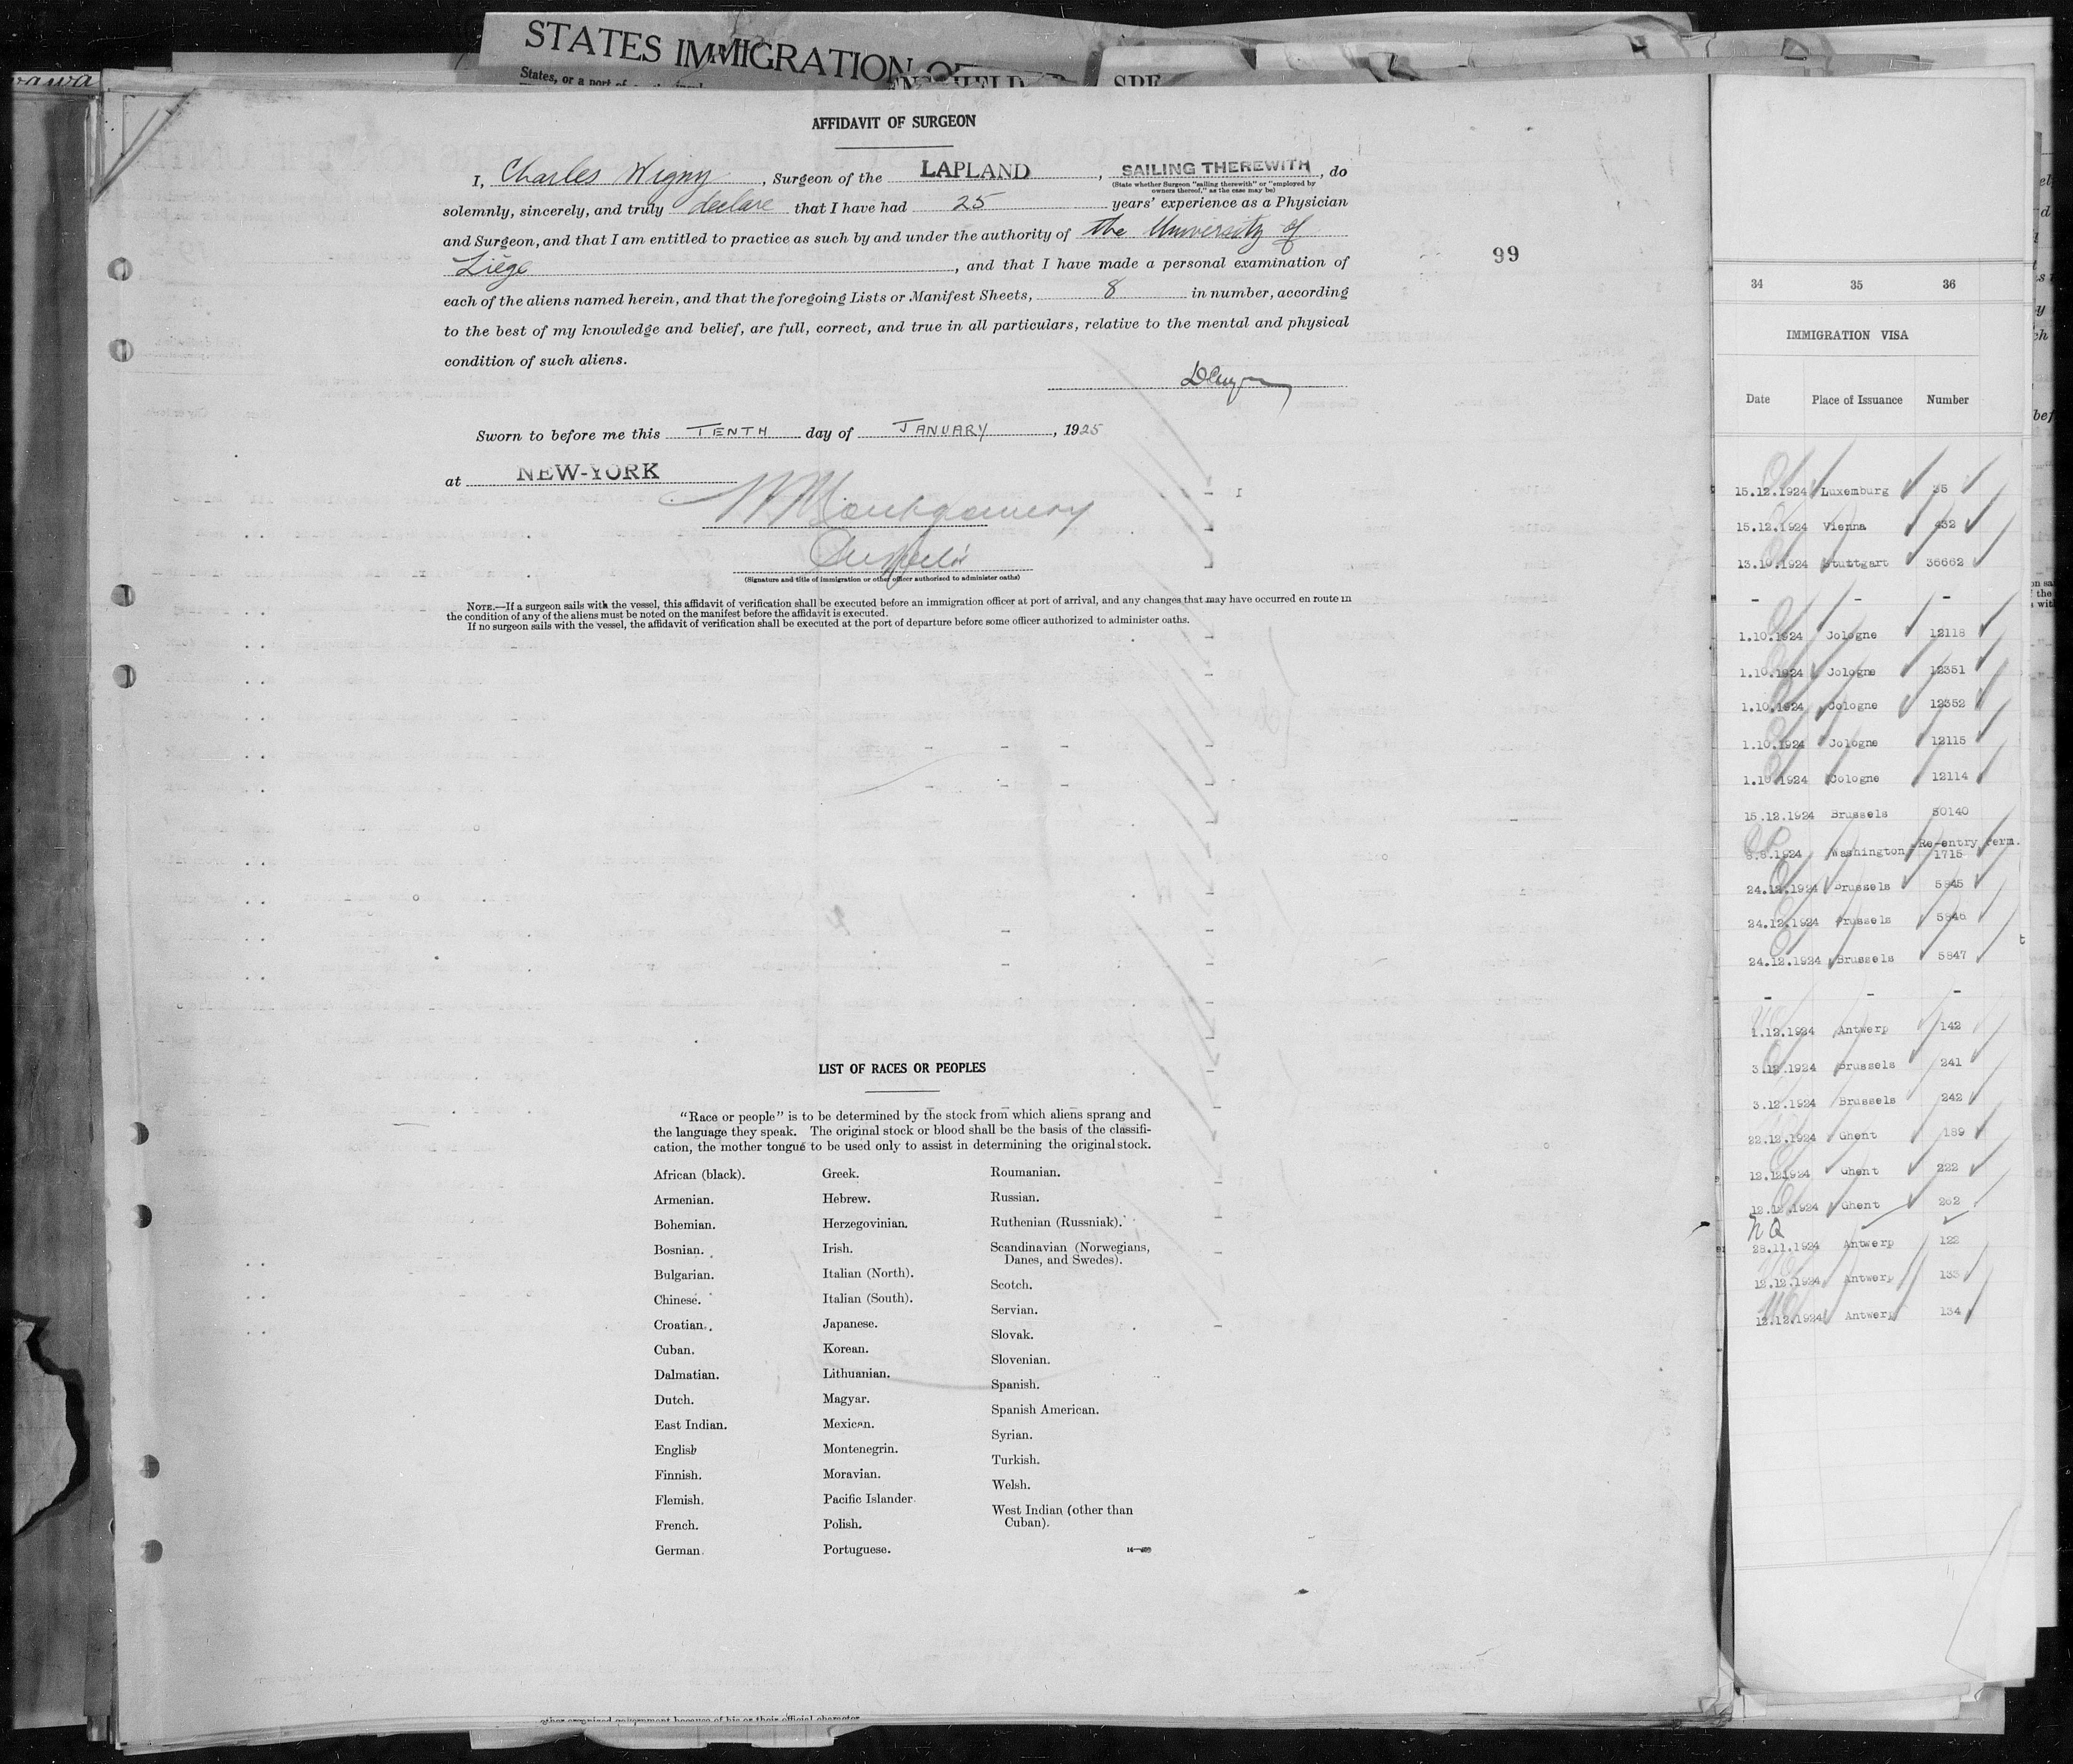 STATES IMMIGRATION OF
States, or a port of
SPE
AFFIDAVIT OF SURGEON
I, Charles Wigny, Surgeon of the LAPLAND, SAILING THEREWITH, do
(State whether Surgeon "sailing therewith" or "employed by
owners thereof," as the case may be)
solemnly, sincerely, and truly declare that I have had 25 years' experience as a Physician
and Surgeon, and that I am entitled to practice as such by and under the authority of the University of
Liége, and that I have made a personal examination of
each of the aliens named herein, and that the foregoing Lists or Manifest Sheets, 8 in number, according
to the best of my knowledge and belief, are full, correct, and true in all particulars, relative to the mental and physical
condition of such aliens.
Sworn to before me this TENTH day of JANUARY, 1925
at NEW-YORK
W Montgomery
(Signature and title of immigration or other officer authorized to administer oaths)
NOTE.—If a surgeon sails with the vessel, this affidavit of verification shall be executed before an immigration officer at port of arrival, and any changes that may have occurred en route in
the condition of any of the aliens must be noted on the manifest before the affidavit is executed.
If no surgeon sails with the vessel, the affidavit of verification shall be executed at the port of departure before some officer authorized to administer oaths.
99
LIST OF RACES OR PEOPLES
"Race or people" is to be determined by the stock from which aliens sprang and
the language they speak. The original stock or blood shall be the basis of the classifi-
cation, the mother tongue to be used only to assist in determining the original stock.
African (black).
Armenian.
Bohemian.
Bosnian.
Bulgarian.
Chinese.
Croatian.
Cuban.
Dalmatian.
Dutch.
East Indian.
English
Finnish.
Flemish.
French.
German
Greek.
Hebrew.
Herzegovinian.
Irish.
Italian (North).
Italian (South).
Japanese.
Korean.
Lithuanian.
Magyar.
Mexican.
Montenegrin.
Moravian.
Pacific Islander.
Polish.
Portuguese.
Roumanian.
Russian.
Ruthenian (Russniak).
Scandinavian (Norwegians,
Danes, and Swedes).
Scotch.
Servian.
Slovak.
Slovenian.
Spanish.
Spanish American.
Syrian.
Turkish.
Welsh.
West Indian (other than
Cuban).
other organized government because of his or their official character
34 35 36
IMMIGRATION VISA
Date Place of Issuance Number
15.12.1924 Luxemburg 35
15.12.1924 Vienna 432
13.10.1924 Stuttgart 36662
- - -
1.10.1924 Cologne 12118
1.10.1924 Cologne 12351
1.10.1924 Cologne 12352
1.10.1924 Cologne 12115
1.10.1924 Cologne 12114
15.12.1924 Brussels 50140
8.8.1924 Washington Re-entry Perm. 1715
24.12.1924 Brussels 5845
24.12.1924 Brussels 5846
24.12.1924 Brussels 5847
- - -
1.12.1924 Antwerp 142
3.12.1924 Brussels 241
3.12.1924 Brussels 242
22.12.1924 Ghent 189
12.12.1924 Ghent 222
12.12.1924 Ghent 262
NQ
28.11.1924 Antwerp 122
12.12.1924 Antwerp 133
12.12.1924 Antwerp 134